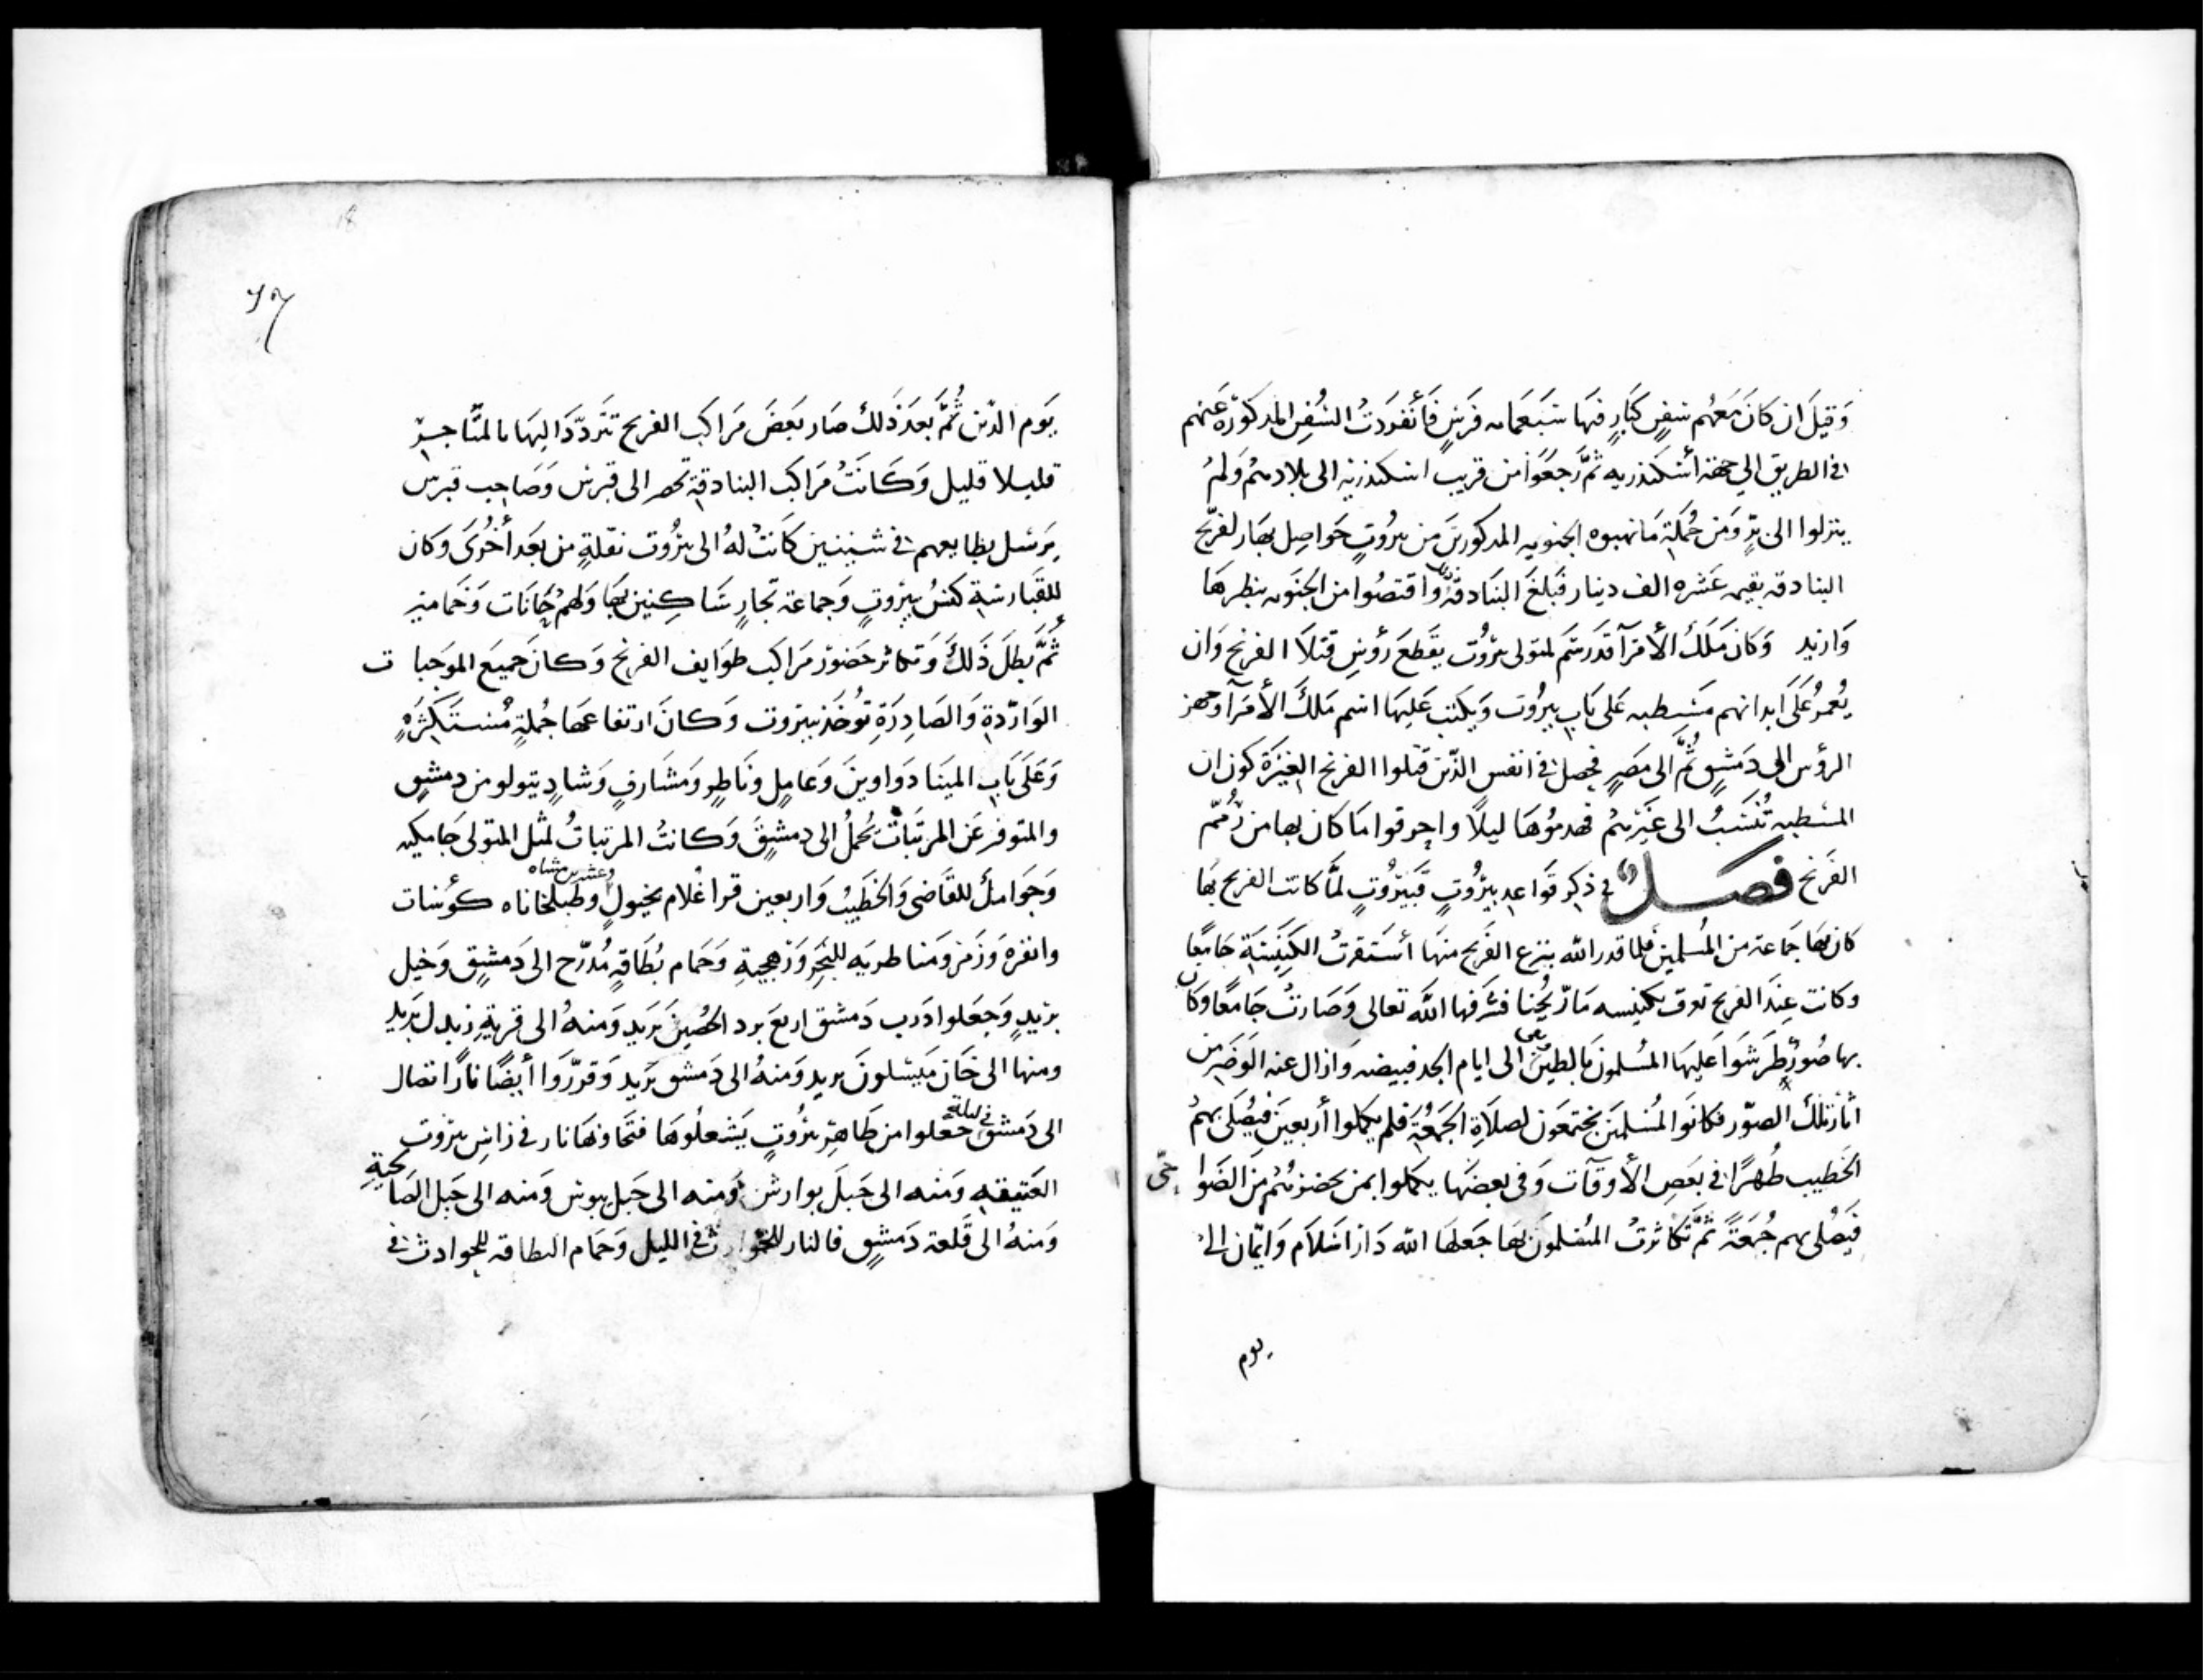 وَقِيلَ ان كَانَ مَعَهُم سُفن كبَارٍ فيهَا سَبعمَايه فَرَسٍ فَأنفرَدَتْ السُفن المذكورَة عَنهم
في الطريق الي جهة أسكندريه ثمَّ رَجعَوا من قريب اسكندريه الى بلادهمُ وَلمْ
ينزلوا الى برٍ وَمن جُملة مَا نهبوه الجنويه المذكورين من بيروُت حَواصِل بهَار لفرنج
البنادقه بقيمه عَشره الف دينار فبَلغَ البنَادقة وَاقتصُوا من الجنَويه بنظرهَا
وَازيد وَكانَ مَلكُ الأمَرآ قد رَسَم لمتولى بيرُوت بقطعَ رؤسِ قتلاَ الفرنج وَان
يُعمرُ عَلَى ابدانهم مَسطبه عَلى بَاب بيرُوت وَيكتب عَليهَا اسم مَلك الأمَرآ وجهز
الرؤس الى دَمشقٍ ثُمَّ الى مصَرٍ فحصل في انفس الذين قتلوا الفرنج الغيَرَة كون ان
المسطبه تُنسَبُ الى غَيرهمُ فهدموُهَا ليلًا واحرقوا مَا كان بها من رُمَم
الفرَنج فصل في ذكر قَوَاعد بيرُوتٍ فبَيرُوتٍ لمَّا كانت الفرنج بهَا
كان بهَا جمَاعة من المُسلمين فلما قدر الله بنزع الفرَنج منهَا أستقرتْ الكنيَسَة جَامعًا
وكانت عِندَ الفرنج تعرف بكنيسه مَار يُحنا فشرفها الله تعالى وَصَارتْ جَامعًا وكان
بها صُورٌ طرَشوَا عَليهَا المسُلمونَ بالطين بقى الى ايام الجد فبيضه وَازال عنه الوَضَر من
اثار تلكَ الصوّر فكانوَا المُسْلمينَ يجتمعَون لصلاَةِ الجَمعُة فلم يكملوا أربعينَ فيصُلى بهمُ
الخطيب ظُهرًا في بعَض الأوقآت وَفي بعضهَا يكملوا بمن يحضرهُم منَ الضوَاحى
فيَصُلى بهم جُمعَةً ثمَّ تكاثرتْ المسُلمونَ بهَا جَعلهَا الله دَار اسَلاَم وَايمّان الى
يوم
يَوم الدّين ثُمَّ بَعدَ ذَلكَ صَار بَعضَ مَراكب الفرنج تترَدّدَ اليهَا بالمتَّاجر
قليلا قليل وَكَانَتْ مَراكب البنادقة تحضر الى قبرس وَصَاحِب قبرس
يرَسل بضايعهم في شينيين كَانتْ لهُ الى بيرُوت نقلةٍ من بعَد أخُرَى وَكان
للقبَارسَة كنسُ ببيرُوتٍ وَجماعة تجارٍ سَاكنين بهَا وَلهمْ خَانات وَحمامين
ثُمَّ بطلَ ذَلكَ وَتكاثر حَضوُر مَراكب طوَايف الفرنج وَكانَ جميَع الموَجبات
الوَاردّة وَالصَادِرَةِ تُوخَذ ببيروت وَكانَ ارتفاعهَا جُملةٍ مُستكثرهٍ
وَعَلَى بَاب المينَا دوَاوينَ وَعَامل ونَاظرٍ وَمَشَارفٍ وَشادٍ يتولو من دمشقٍ
والمتوفر عَن المرتبَات تُحملُ الى دمشقَ وَكانتْ المرتباتُ لمثل المتولى جَامكيه
وَجَوامكُ للقَاضى وَالخطيبُ وَاربعين قراغُلام بخيول وعشرين مشاه وطبلخاناه كؤسات
وانفره وَزمَر وَمنَاظريَه للبَحَرِ وَزهجيةِ وَحمَام بُطَاقةٍ مُدرّج الى دَمشقٍ وَخيل
بريدٍ وَجَعَلوا دَرب دَمشق اربعَ برد الحصُين بَريد وَمنهُ الى قرية زبدل بَريد
ومنها الى خَان ميَسلونَ بريد وَمنهُ الى دَمشق بَريد وَقررّوَا أيضًا نارًا تصال
الى دَمشق في ليلة جَعلوا من ظَاهرِ بيرُوتٍ يَشعلُوهَا فتجَاوبهَا نار في رَاس بيرَوت
العَتيقه وَمنه الى جَبلَ بوارش وَمنه الى جَبل يبوس وَمنه الى جَبل الصَالحيةِ
وَمنهُ الى قَلعة دَمشقٍ فالنار للحَوادثَ في الليل وَحَمام البطاقه للحوادث في